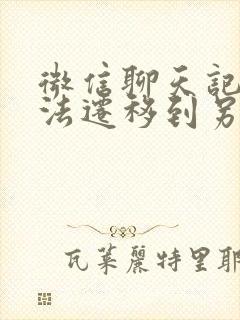 微信聊天記
法遷移到另
瓦萊麗特里耶